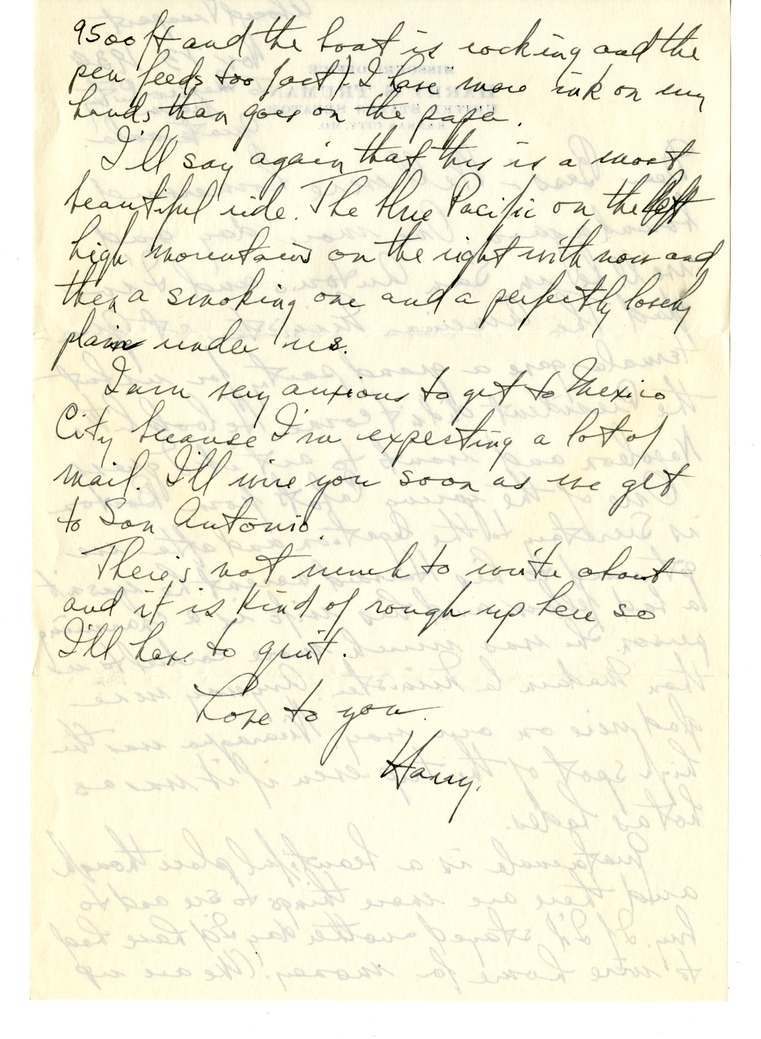 9500 ft and the boat is rocking and the
pen feeds too fast) I have more ink on my
hands than goes on the paper.
I'll say again that this is a most
beautiful ride. The blue Pacific on the left
high mountains on the right with now and
then a smoking one and a perfectly lovely
plain under us.
I am very anxious to get to Mexico
City because I'm expecting a lot of
mail. I'll wire you soon as we get
to San Antonio.
There's not much to write about
and it is kind of rough up here so
I'll have to quit.
Love to you.
Harry.